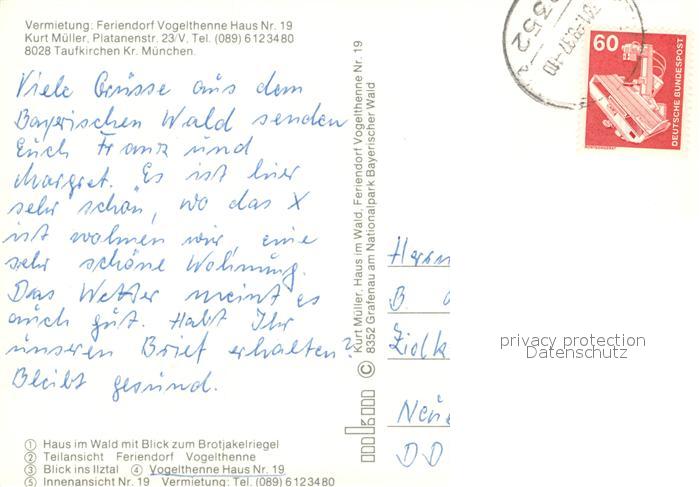 Vermietung: Feriendorf Vogelthenne Haus Nr. 19
Kurt Müller, Platanenstr. 23/V, Tel. (089) 6123480
8028 Taufkirchen Kr. München.
Viele Grüsse aus dem
Bayerischen Wald senden
Euch Franz und
Margret. Es ist hier
sehr schön, wo das X
ist wohnen wir, eine
sehr schöne Wohnung.
Das Wetter meint es
auch gut. Habt Ihr
unseren Brief erhalten?
Bleibt gesund.
① Haus im Wald mit Blick zum Brotjakelriegel
② Teilansicht Feriendorf Vogelthenne
③ Blick ins Ilztal ④ Vogelthenne Haus Nr. 19
⑤ Innenansicht Nr. 19 Vermietung: Tel. (089) 6123480
© Kurt Müller, Haus im Wald, Feriendorf Vogelthenne Nr. 19
8352 Grafenau am Nationalpark Bayerischer Wald
8352
60
DEUTSCHE BUNDESPOST
Herrn
B.
Ziolk
Neue
DD
privacy protection
Datenschutz